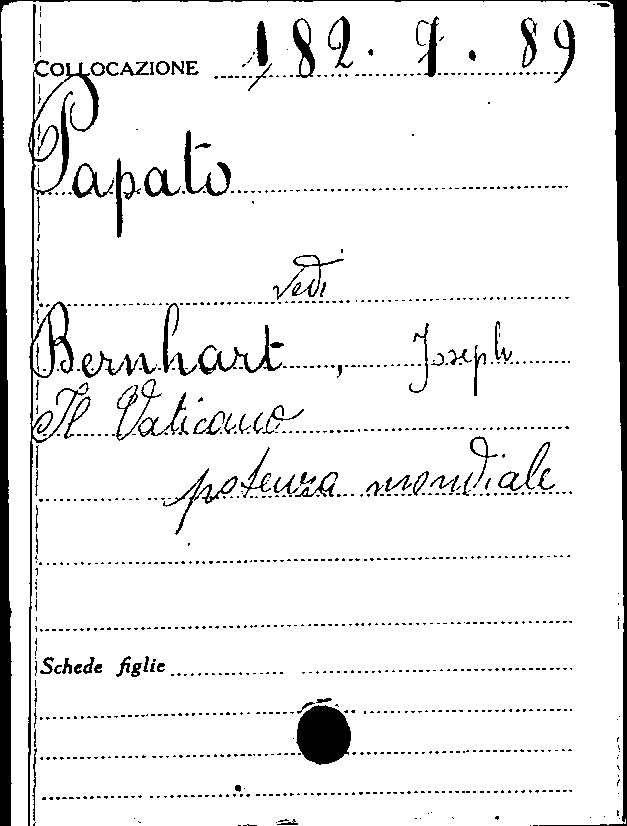 COLLOCAZIONE 182. 9. 89
Papato
vedi
Bernhart, Joseph
Il Vaticano
potenza mondiale
Schede figlie